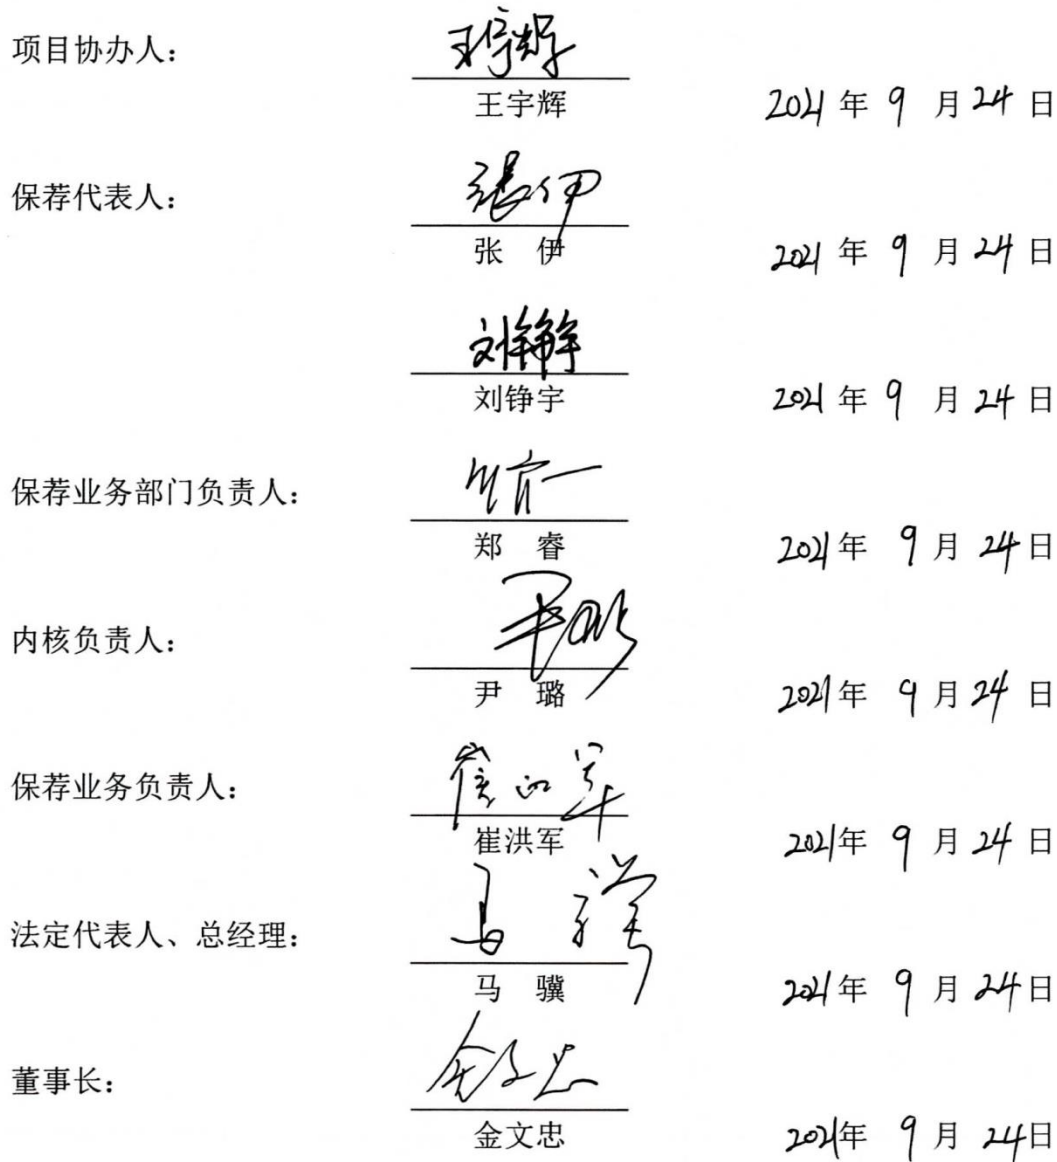 项目协办人：
王宇辉
王宇辉 2021年 9 月 24 日
保荐代表人：
张伊
张 伊 2021 年 9 月 24 日
刘铮宇
刘铮宇 2021 年 9 月 24 日
保荐业务部门负责人：
郑 睿 2021 年 9 月 24 日
内核负责人：
尹璐
尹 璐 2021 年 9 月 24 日
保荐业务负责人：
崔洪军
崔洪军 2021年 9 月 24 日
法定代表人、总经理：
马骥
马 骥 2021 年 9 月 24 日
董事长：
金文忠
金文忠 2021年 9 月 24日